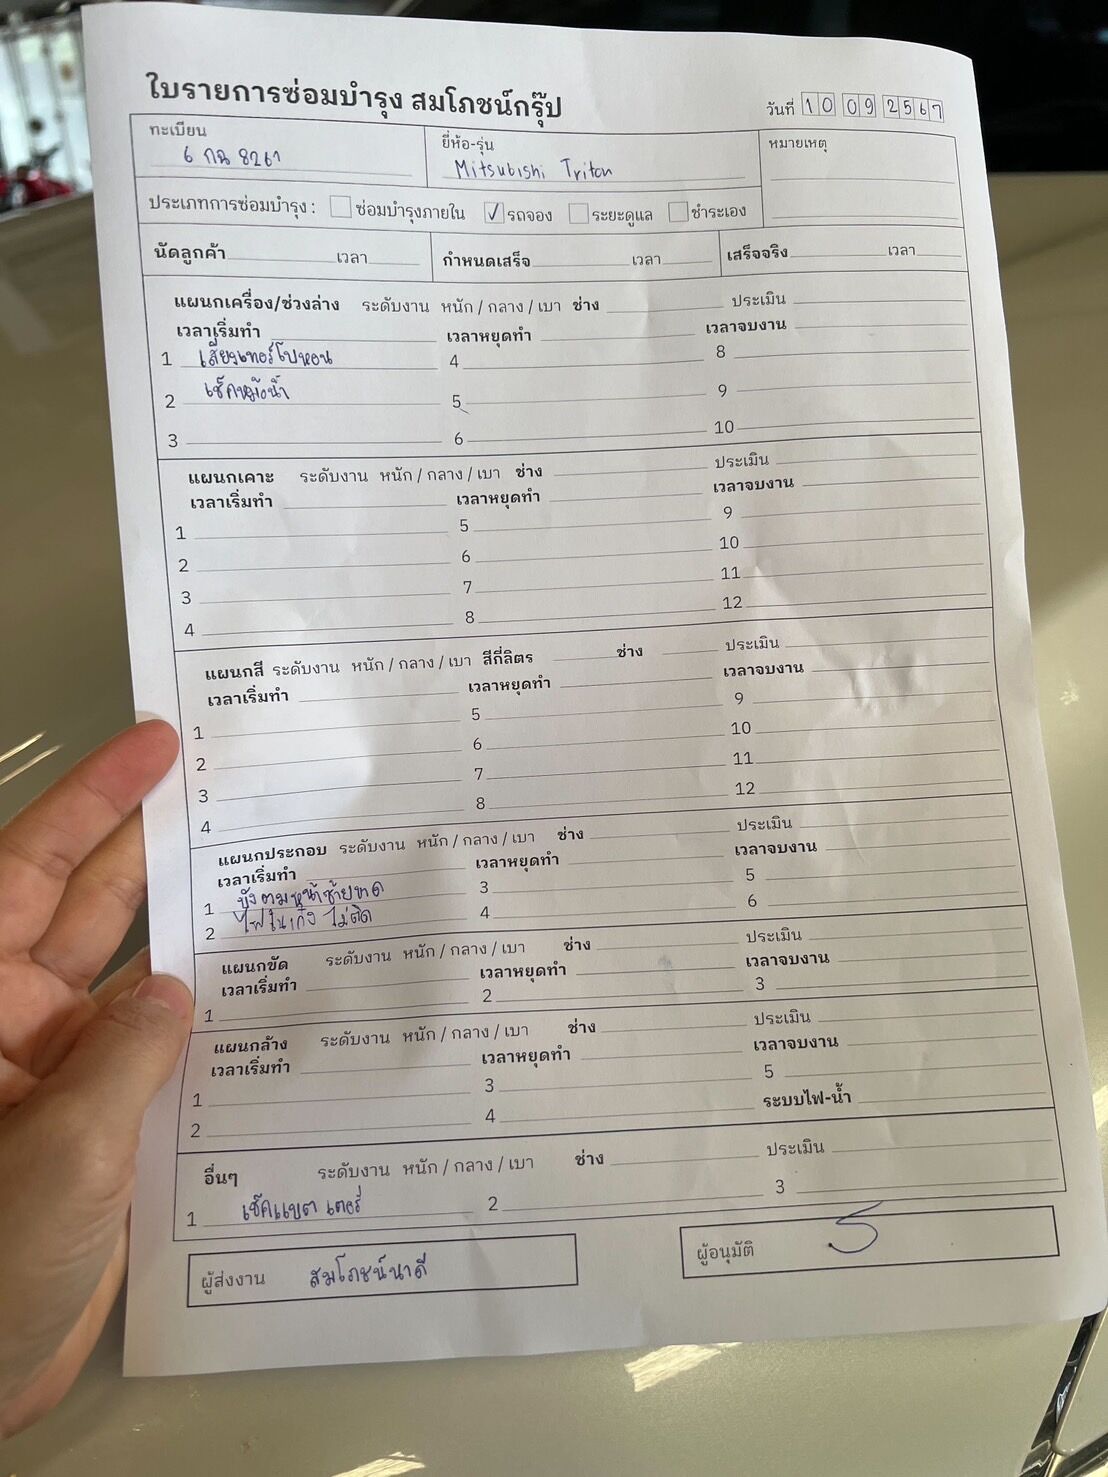 ใบรายการซ่อมบำรุง สมโภชน์กรุ๊ป
วันที่ 10 09 2567
ทะเบียน 6 กฉ 8261
ยี่ห้อ-รุ่น Mitsubishi Triton
หมายเหตุ
ประเภทการซ่อมบำรุง : ซ่อมบำรุงภายใน ✓ รถจอง ระยะดูแล ชำระเอง
นัดลูกค้า เวลา กำหนดเสร็จ เวลา เสร็จจริง เวลา
แผนกเครื่อง/ช่วงล่าง ระดับงาน หนัก / กลาง / เบา ช่าง ประเมิน
เวลาเริ่มทำ เวลาหยุดทำ เวลาจบงาน
1 เสียงเทอร์โบหอน 4 8
2 เช็คหม้อน้ำ 5 9
3 6 10
แผนกเคาะ ระดับงาน หนัก / กลาง / เบา ช่าง ประเมิน
เวลาเริ่มทำ เวลาหยุดทำ เวลาจบงาน
1 5 9
2 6 10
3 7 11
4 8 12
แผนกสี ระดับงาน หนัก / กลาง / เบา สีกี่ลิตร ช่าง ประเมิน
เวลาเริ่มทำ เวลาหยุดทำ เวลาจบงาน
1 5 9
2 6 10
3 7 11
4 8 12
แผนกประกอบ ระดับงาน หนัก / กลาง / เบา ช่าง ประเมิน
เวลาเริ่มทำ เวลาหยุดทำ เวลาจบงาน
1 บังตมหน้าซ้ายขาด 3 5
2 ไฟในเก๋ง ไม่ติด 4 6
แผนกขัด ระดับงาน หนัก / กลาง / เบา ช่าง ประเมิน
เวลาเริ่มทำ เวลาหยุดทำ เวลาจบงาน
1 2 3
แผนกล้าง ระดับงาน หนัก / กลาง / เบา ช่าง ประเมิน
เวลาเริ่มทำ เวลาหยุดทำ เวลาจบงาน
1 3 5
2 4 ระบบไฟ-น้ำ
อื่นๆ ระดับงาน หนัก / กลาง / เบา ช่าง ประเมิน
1 เช็คแบตเตอรี่ 2 3
ผู้ส่งงาน สมโภชน์นาดี
ผู้อนุมัติ